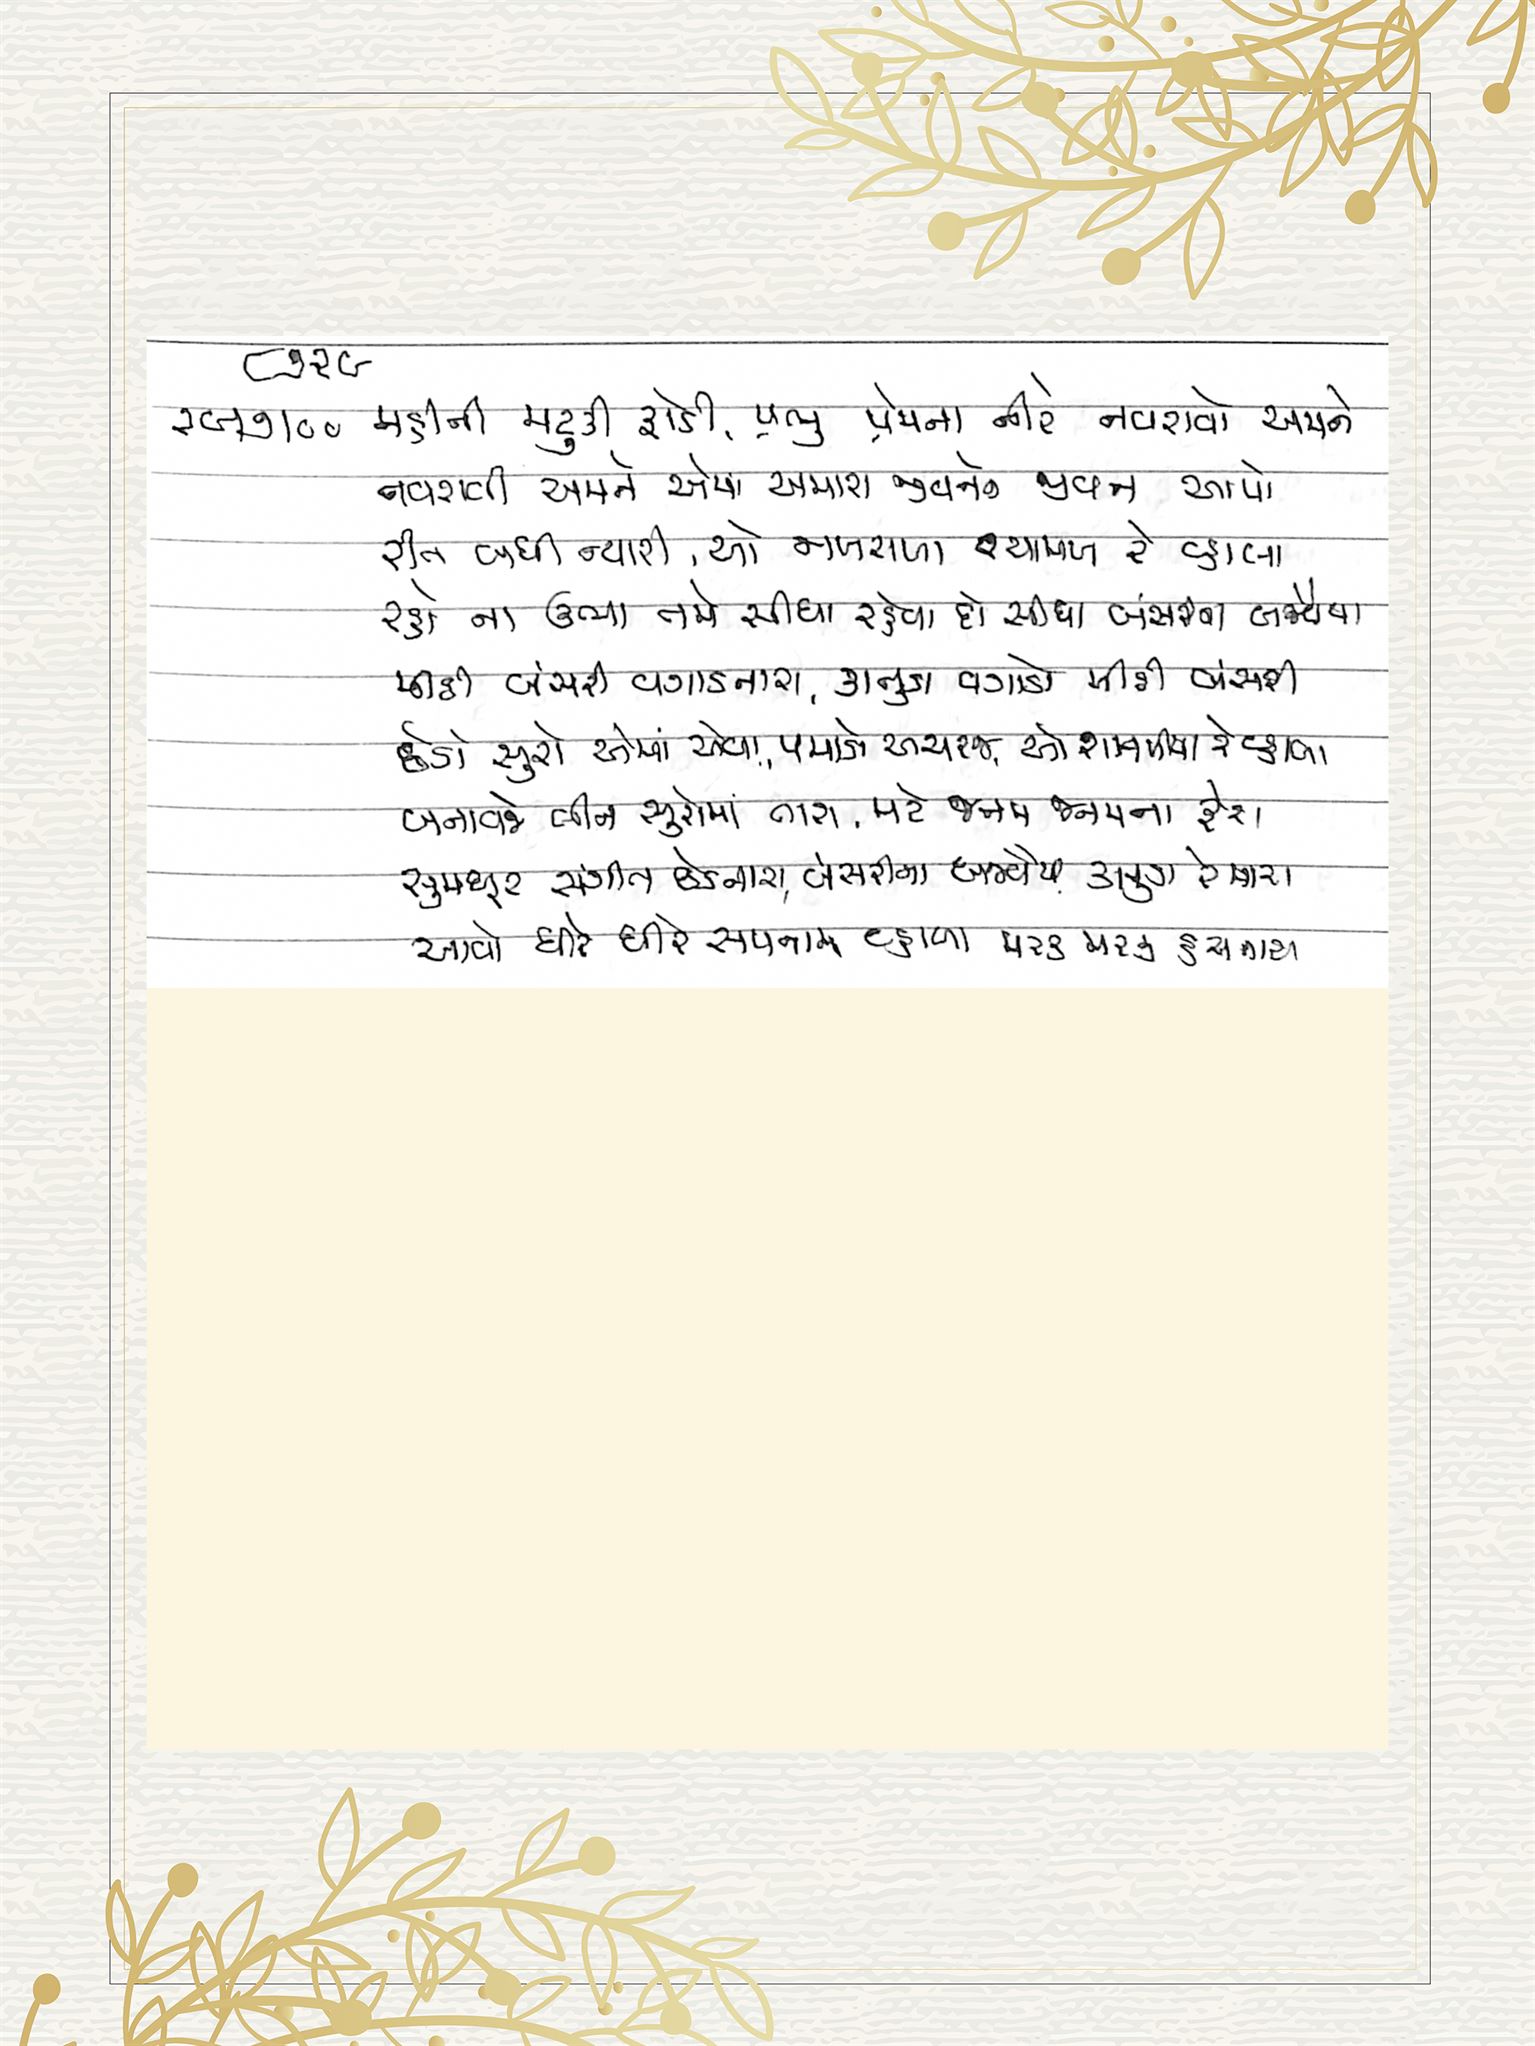 ૮૭૨૯
મહીની મટુકી ફોડી, પ્રભુ પ્રેમના નીરે નવરાવો અમને
નવરાવી અમને એમાં અમારા જીવનને જીવન આપો
રીત બધી ન્યારી, ઓ શ્યામળ રે વ્હાલા
રહો ના ઉભા તમે સીધા રહેવા દો સીધા બંસરીના બજૈયા
મીઠી બંસરી વગાડનારા, કાનુડા વગાડો મીઠી બંસરી
છેડો સુરો એમાં એવા, પમાડે અચરજ, ઓ રે વ્હાલા
બનાવજે લીન સુરોમાં તારા, મટે જનમ જનમના ફેરા
સુમધુર સંગીત છેડનારા, બંસરીના બજૈયા કાનુડા રે મારા
આવો ધીરે ધીરે સપનામાં વ્હાલા મરક મરક હસનારા